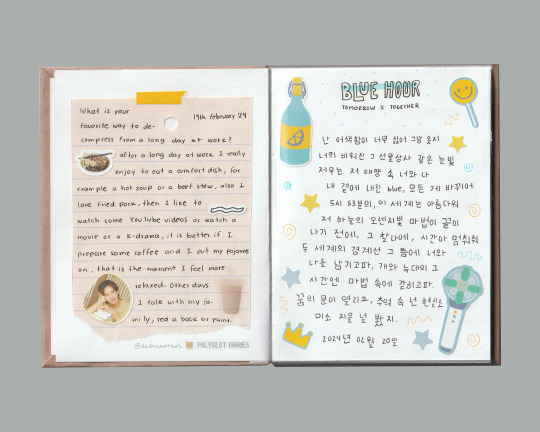 What is your
19th february '24
favorite way to de-
compress from a long day at work?
after a long day at work I really
enjoy to eat a comfort dish, for
example a hot soup or a beef stew, also I
love fried pork, then I like to
watch some YouTube videos or watch a
movie or a K-drama, it is better if I
prepare some coffee and I put my pajamas
on, that is the moment I feel more
relaxed. Other days
I talk with my fa-
mily, read a book or paint.
POLYGLOT DIARIES
BLUE HOUR
TOMORROW X TOGETHER
난 어색함이 너무 싫어 그냥 웃지
너의 비워진 그 선물상자 같은 눈빛
저무는 저 태양 속 너와 나
내 곁에 내린 blue, 모든 게 바뀌어
5시 53분의, 이 세계는 아름다워
저 하늘의 오렌지빛 마법이 끝이
나기 전에, 그 찰나에, 시간아 멈춰줘
두 세계의 경계선 그 틈에 너와
나를 남기고파. 개와 늑대의 그
시간엔 마법 속에 갇히고파.
꿈의 문이 열리고, 추억 속 넌 현실로
미소 지을 널 봤지.
2024년 02월 20일